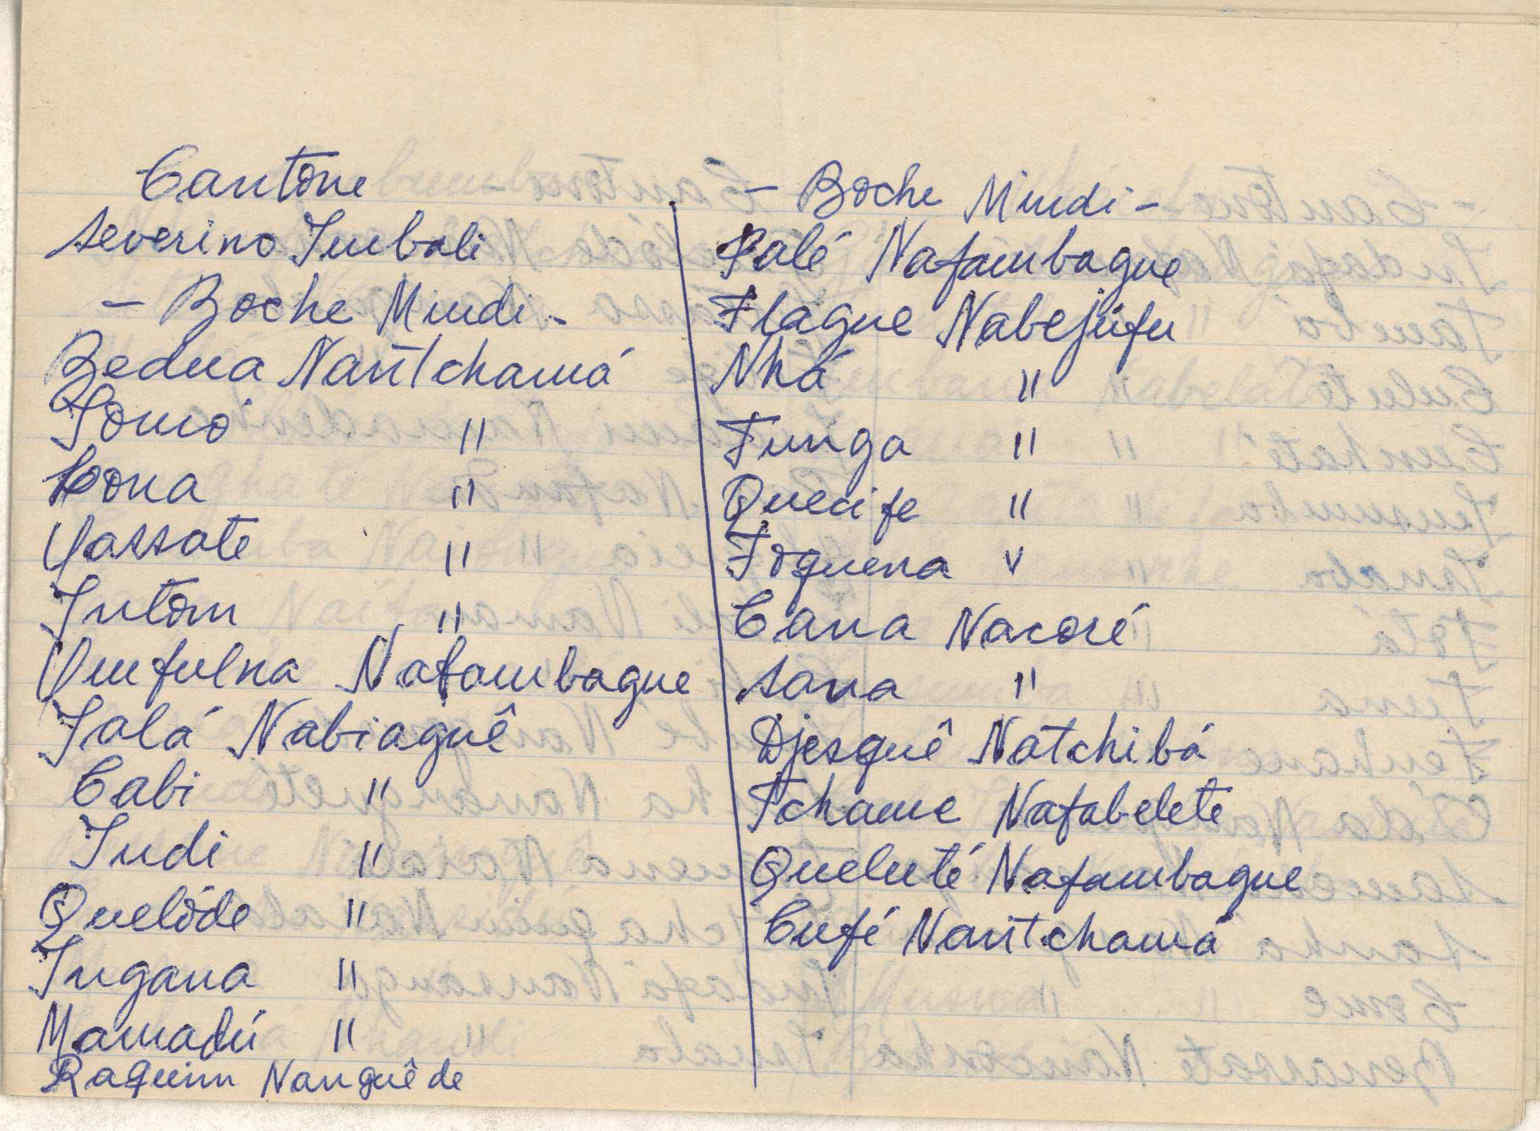 Cantone
Severino Imbali
- Boche Mindi -
Bedua Nantchamá
Somó "
Cona "
Yassate "
Intom "
Umfulna Nafambague
Jalá Nabiaguê
Cabi "
Indi "
Quelóde "
Ingana "
Mamadú "
Raquim Nanguêde
- Boche Mindi -
Palé Nafambague
Flague Nabejúfu
Nhá "
Funga "
Quecife "
Foquena "
Cana Nacoré
Sana "
Djesquê Natchibá
Tchame Nafabelete
Queluté Nafambague
Cufé Nantchamá